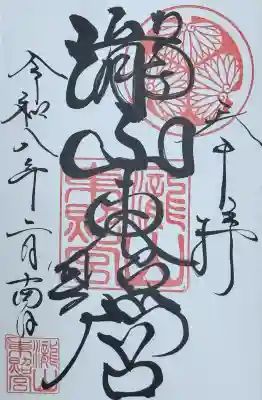 瀧山東照宮
令和八年二月十四日
瀧山
東照宮
瀧山
東照宮